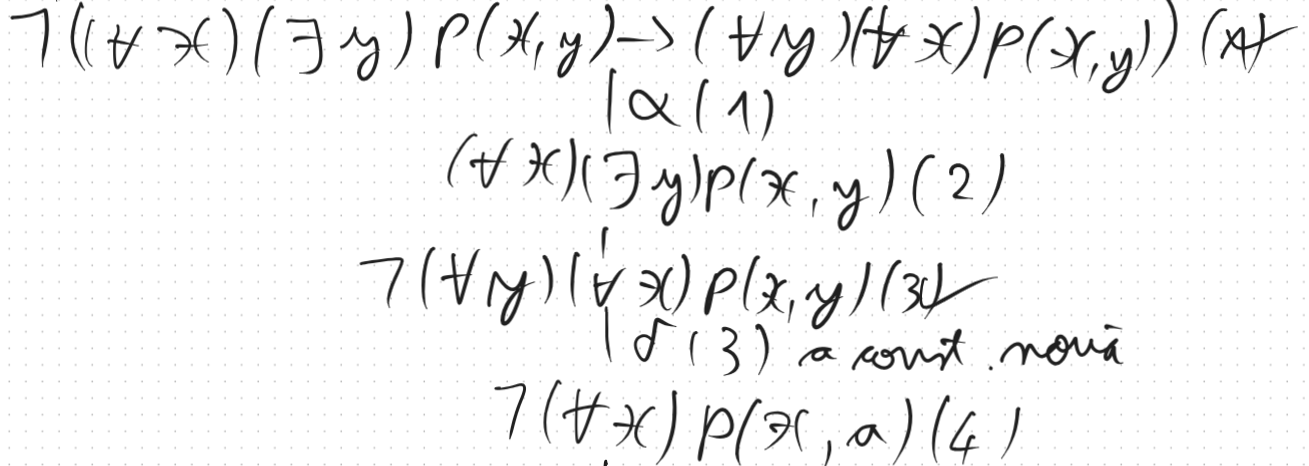 ¬((∀x)(∃y)p(x,y)→(∀y)(∀x)p(x,y)) (1)✓
| α(1)
(∀x)(∃y)p(x,y)(2)
|
¬(∀y)(∀x)p(x,y)(3)✓
| δ(3) a const. nouă
¬(∀x)p(x,a)(4)